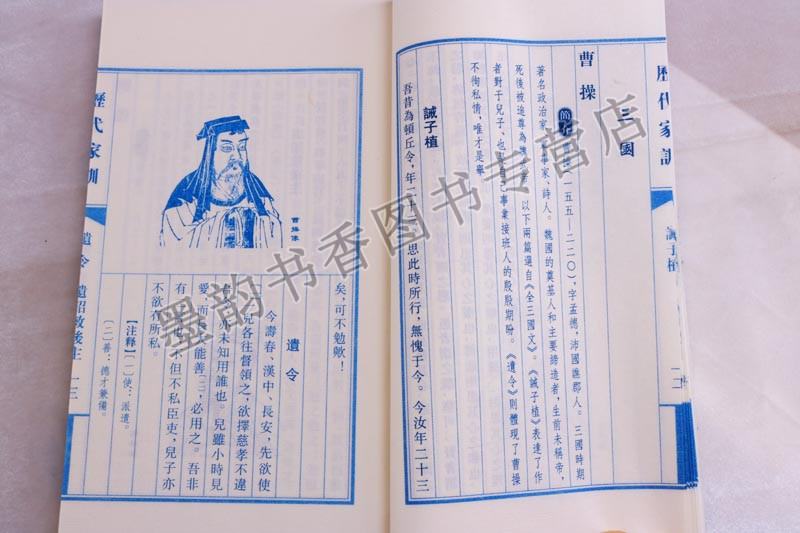 歷代家訓
誡子植
一二
三國
曹操
簡介 曹操(一五五—二二〇),字孟德,沛國譙郡人。三國時期
著名政治家、軍事家、詩人。魏國的奠基人和主要締造者,生前未稱帝,
死後被追尊為魏 以下兩篇選自《全三國文》。《誡子植》表達了作
者對于兒子、也是自己事業接班人的殷殷期盼。《遺令》則體現了曹操
不徇私情,唯才是舉
誡子植
吾昔為頓丘令,年二十三,思此時所行,無愧于今。今汝年二十三
曹操像
矣,可不勉歟!
遺令
今壽春、漢中、長安,先欲使
一兒各往督領之,欲擇慈孝不違
吾令亦未知用誰也。兒雖小時見
愛,而長大能善〔二〕,必用之。吾非
有二言也,不但不私臣吏,兒子亦
不欲有所私。
【注釋】〔一〕使:派遣。
〔二〕善:德才兼備。
歷代家訓
遺令 遺詔敕後主
一三
墨韵书香图书专营店